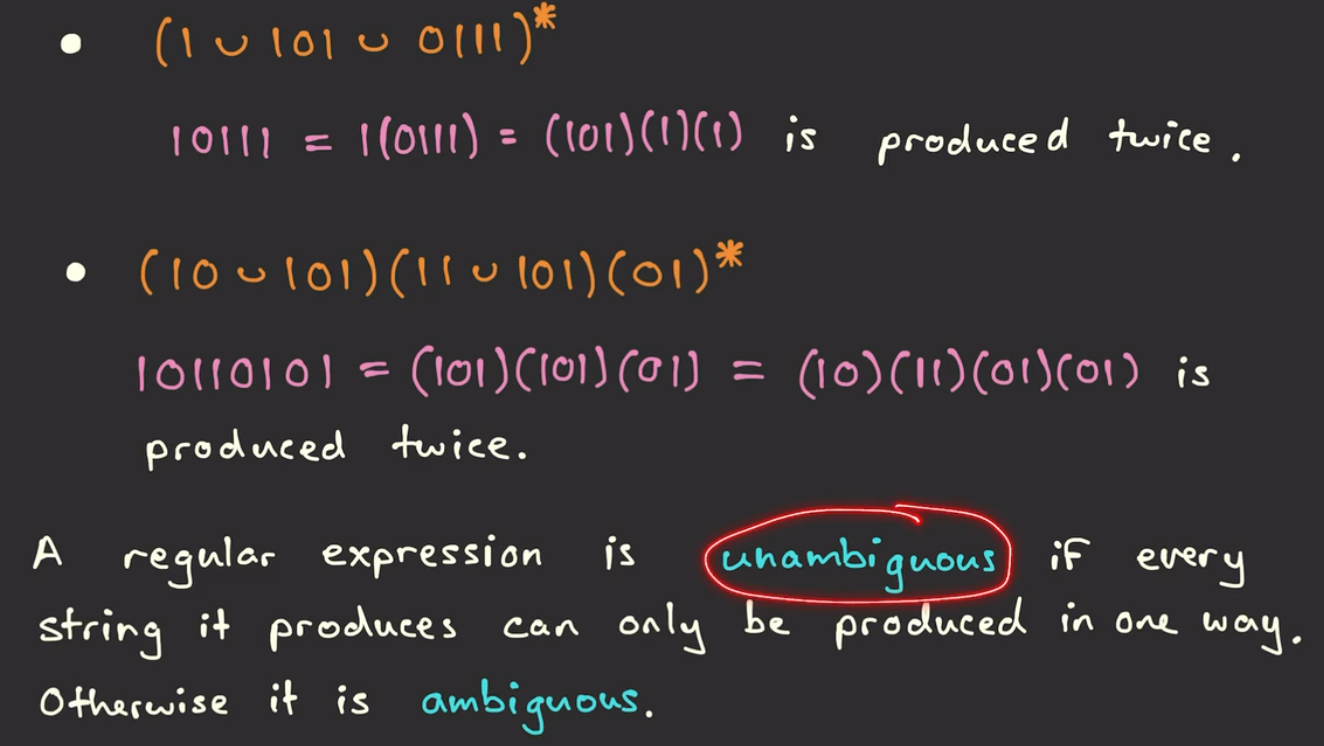 • (1 ∪ 101 ∪ 0111)*
10111 = 1(0111) = (101)(1)(1) is produced twice.
• (10 ∪ 101)(11 ∪ 101)(01)*
10110101 = (101)(101)(01) = (10)(11)(01)(01) is
produced twice.
A regular expression is unambiguous if every
string it produces can only be produced in one way.
Otherwise it is ambiguous.